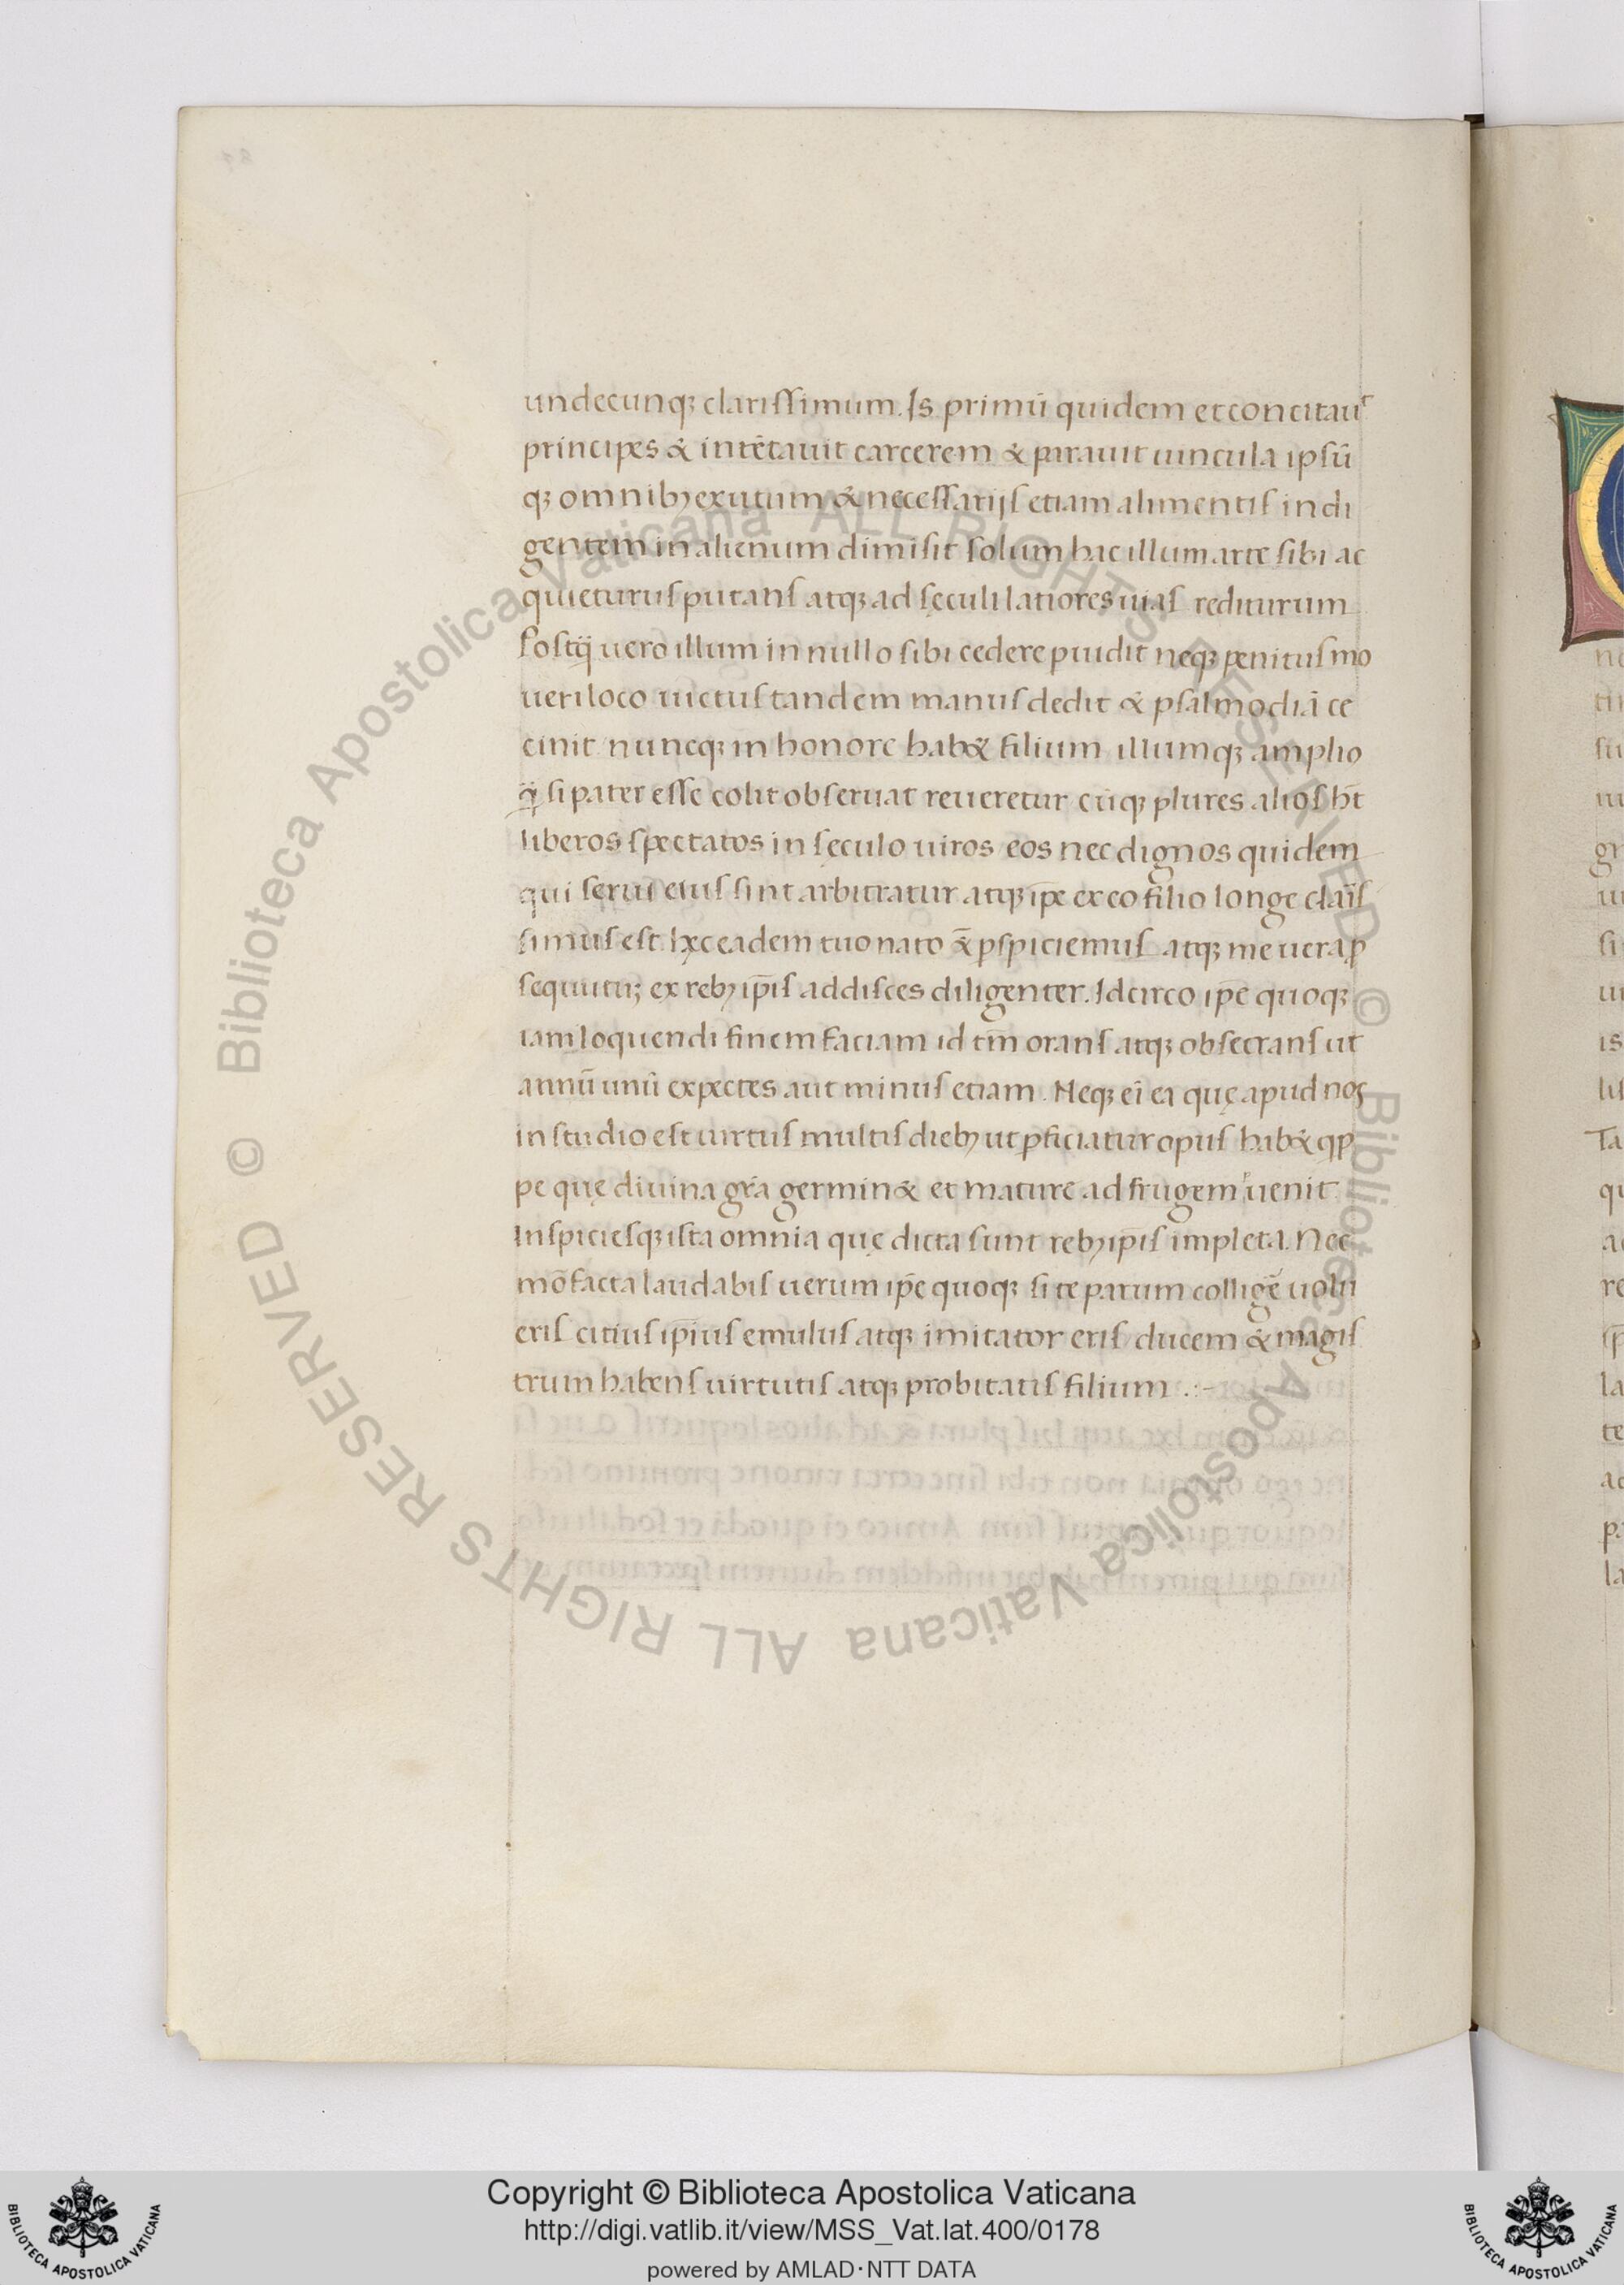 undecunqꝫ clarissimum. Is primū quidem et concitauᷣ
principes & intētauit carcerem & parauit uincula ipsū
qꝫ omnibꝫ exutum & necessarijs etiam alimentis indi
gentem in alienum dimisit solum hac illum arte sibi ac
quieturus putans atqꝫ ad sęculi latiores uias rediturum
Postq̄ uero illum in nullo sibi cedere puidit neqꝫ penitus mo
ueri loco uictus tandem manus dedit & psalmodiā ce
cinit nuncqꝫ in honore hab& filium illumqꝫ amplio
si pater esse colit obseruat reueretur cūqꝫ plures alios ht̄
liberos spectatos in sęculo uiros eos nec dignos quidem
qui serui eius sint arbitratur atqꝫ ip̄e ex eo filio longe claris̄
simus est hęc eadem tuo nato & ꝑspiciemus atqꝫ me uera ꝓ
sequutū ex rebꝫ ip̄is addisces diligenter. Idcirco ip̄e quoqꝫ
iam loquendi finem faciam id tm̄ orans atqꝫ obsecrans ut
annū unū expectes aut minus etiam. Neqꝫ ei ea quę apud nos
in studio est uirtus multis diebꝫ ut ꝑficiatur opus hab& qp
pe quę diuina gr̄a germin& et mature ad frugem uenit
Inspiciesqꝫ ista omnia quę dicta sunt rebꝫ ip̄is impleta. Nec
mō facta laudabis uerum ip̄e quoqꝫ si te parum colligē uolu
eris citius ip̄ius emulus atqꝫ imitator eris ducem & magis
trum habens uirtutis atqꝫ probitatis filium .:-
© Biblioteca Apostolica Vaticana ALL RIGHTS RESERVED © Biblioteca Apostolica Vaticana ALL RIGHTS RESERVED
Copyright © Biblioteca Apostolica Vaticana
http://digi.vatlib.it/view/MSS_Vat.lat.400/0178
powered by AMLAD·NTT DATA
BIBLIOTECA APOSTOLICA VATICANA
BIBLIOTECA APOSTOLICA VATICANA